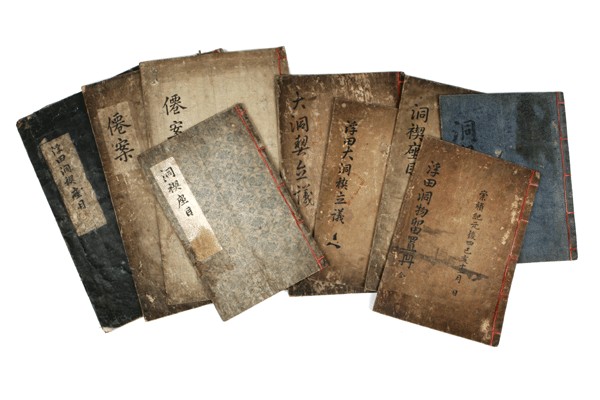 浮田洞禊座目
僊案
僊案
洞禊座目
大洞契立議
浮田大洞禊立議
洞禊座目
浮田洞物
冊
崇禎紀元後四己亥
月 日
洞